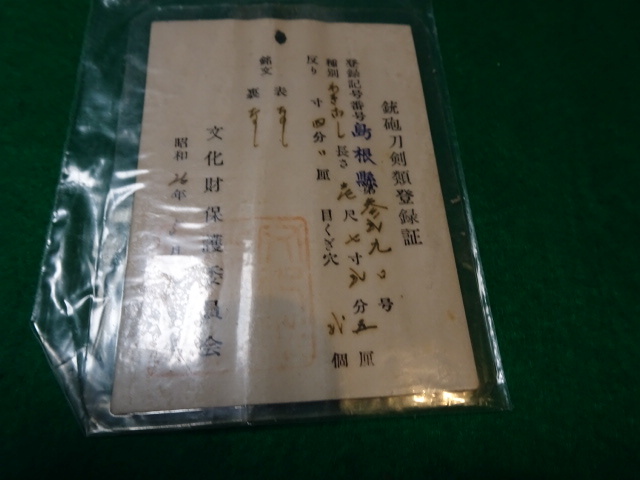 銃砲刀剣類登録証
登録記号番号島根縣第参弐九〇号
種別わきざし長さ壱尺七寸弐分五厘
反り 寸四分〇厘 目くぎ穴 弐個
銘文 表なし
裏なし
文化財保護委員会
昭和 年 月